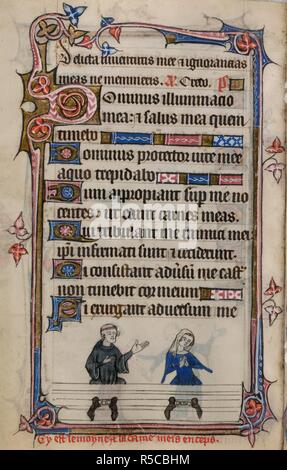 Delicta iuventutis mee et ignorancias
meas ne memineris. A. Credo. Ps.
Dominus illuminacio
mea: et salus mea quem
timebo
Dominus protector vite mee
a quo trepidabo
Dum appropiant sup me no
centes: ut edant carnes meas.
Qui tribulant me inimici mei
ipi infirmati sunt et ceciderunt.
Si consistant adusum me cast
non timebit cor meum
Si exurgant adversum me
Cy est le moyne et la dame meis en ceps.
alamy
alamy stock photo
R5CBHM
www.alamy.com